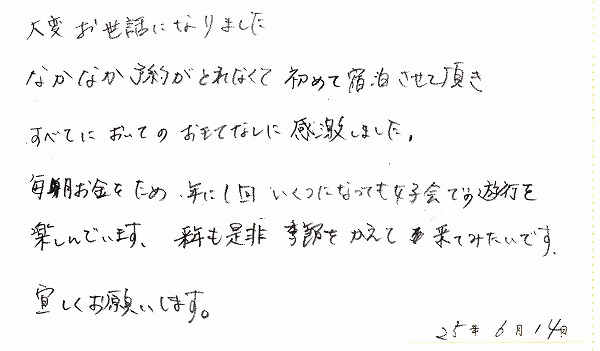 大変お世話になりました
なかなか予約がとれなくて初めて宿泊させて頂き
すべてにおいてのおもてなしに感激しました。
毎期お金をため、年に1回いくつになっても女子会での遊行を
楽しんでいます、来年も是非季節をかえて来てみたいです、
宜しくお願いします。
25年6月14日